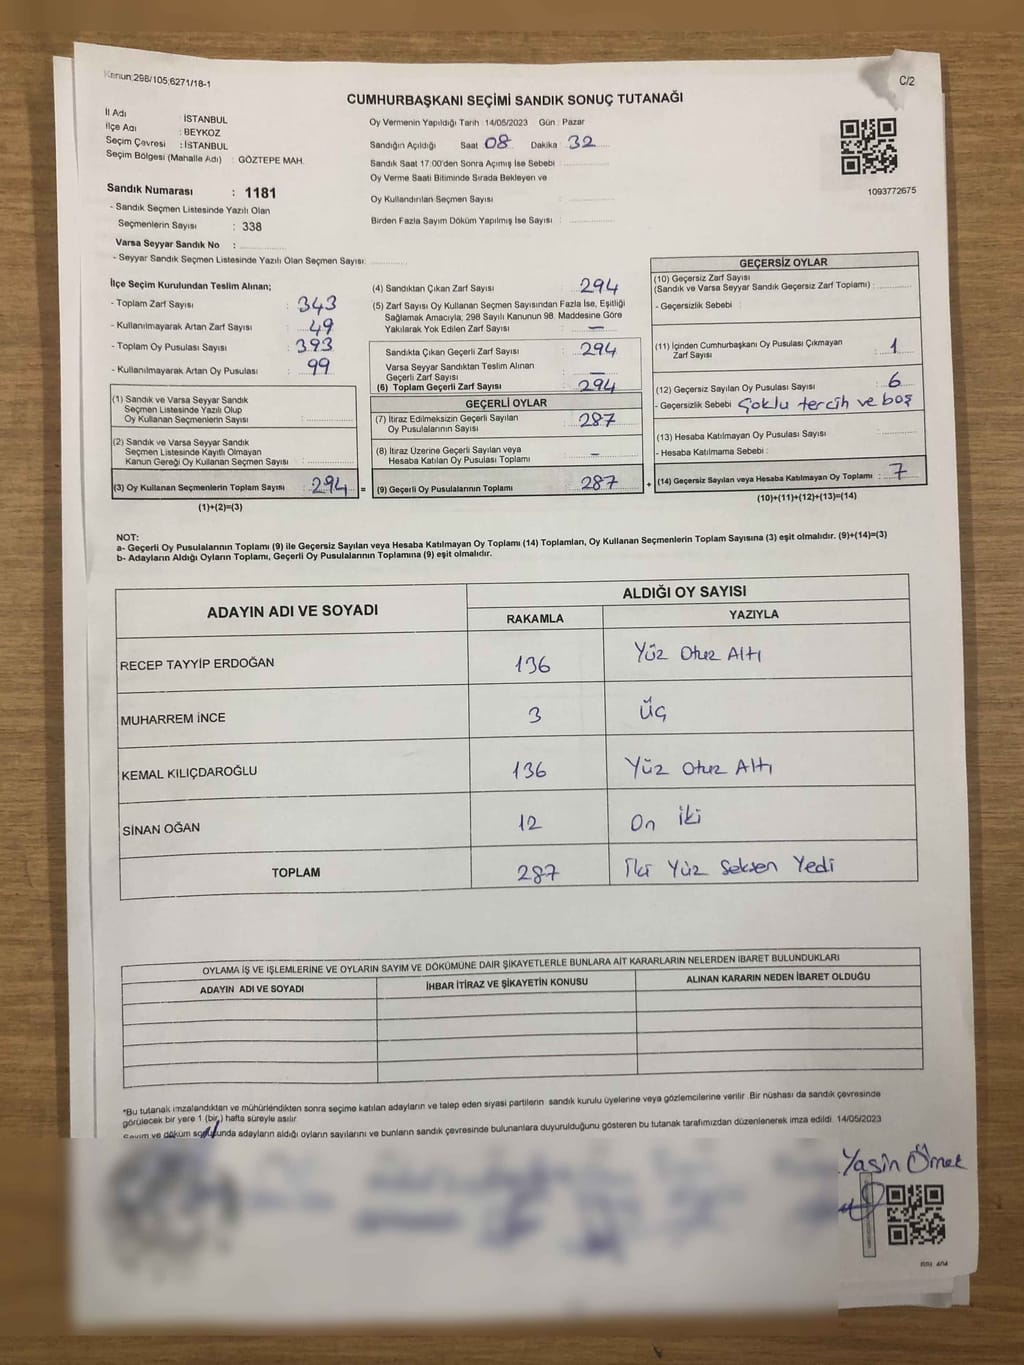 Kanun;298/105;6271/18-1
C/2
CUMHURBAŞKANI SEÇİMİ SANDIK SONUÇ TUTANAĞI
İl Adı : İSTANBUL
İlçe Adı : BEYKOZ
Seçim Çevresi : İSTANBUL
Seçim Bölgesi (Mahalle Adı) : GÖZTEPE MAH.
Oy Vermenin Yapıldığı Tarih 14/05/2023 Gün : Pazar
Sandığın Açıldığı Saat 08 Dakika 32
Sandık Saat 17:00'den Sonra Açımış İse Sebebi :
Oy Verme Saati Bitiminde Sırada Bekleyen ve
Oy Kullandırılan Seçmen Sayısı :
Birden Fazla Sayım Döküm Yapılmış İse Sayısı :
1093772675
Sandık Numarası : 1181
- Sandık Seçmen Listesinde Yazılı Olan
Seçmenlerin Sayısı : 338
Varsa Seyyar Sandık No :
- Seyyar Sandık Seçmen Listesinde Yazılı Olan Seçmen Sayısı:
İlçe Seçim Kurulundan Teslim Alınan;
- Toplam Zarf Sayısı : 343
- Kullanılmayarak Artan Zarf Sayısı : 49
- Toplam Oy Pusulası Sayısı : 393
- Kullanılmayarak Artan Oy Pusulası : 99
(1) Sandık ve Varsa Seyyar Sandık
Seçmen Listesinde Yazılı Olup
Oy Kullanan Seçmenlerin Sayısı :
(2) Sandık ve Varsa Seyyar Sandık
Seçmen Listesinde Kayıtlı Olmayan
Kanun Gereği Oy Kullanan Seçmen Sayısı :
(3) Oy Kullanan Seçmenlerin Toplam Sayısı : 294 =
(1)+(2)=(3)
(4) Sandıktan Çıkan Zarf Sayısı : 294
(5) Zarf Sayısı Oy Kullanan Seçmen Sayısından Fazla İse, Eşitliği
Sağlamak Amacıyla; 298 Sayılı Kanunun 98. Maddesine Göre
Yakılarak Yok Edilen Zarf Sayısı : —
Sandıkta Çıkan Geçerli Zarf Sayısı : 294
Varsa Seyyar Sandıktan Teslim Alınan
Geçerli Zarf Sayısı : —
(6) Toplam Geçerli Zarf Sayısı : 294
GEÇERLİ OYLAR
(7) İtiraz Edilmeksizin Geçerli Sayılan
Oy Pusulalarının Sayısı : 287
(8) İtiraz Üzerine Geçerli Sayılan veya
Hesaba Katılan Oy Pusulası Toplamı : –
(9) Geçerli Oy Pusulalarının Toplamı : 287 +
GEÇERSİZ OYLAR
(10) Geçersiz Zarf Sayısı
(Sandık ve Varsa Seyyar Sandık Geçersiz Zarf Toplamı) :
- Geçersizlik Sebebi :
(11) İçinden Cumhurbaşkanı Oy Pusulası Çıkmayan
Zarf Sayısı : 1
(12) Geçersiz Sayılan Oy Pusulası Sayısı : 6
- Geçersizlik Sebebi Çoklu tercih ve boş
(13) Hesaba Katılmayan Oy Pusulası Sayısı :
- Hesaba Katılmama Sebebi :
(14) Geçersiz Sayılan veya Hesaba Katılmayan Oy Toplamı : 7
(10)+(11)+(12)+(13)=(14)
NOT:
a- Geçerli Oy Pusulalarının Toplamı (9) ile Geçersiz Sayılan veya Hesaba Katılmayan Oy Toplamı (14) Toplamları, Oy Kullanan Seçmenlerin Toplam Sayısına (3) eşit olmalıdır. (9)+(14)=(3)
b- Adayların Aldığı Oyların Toplamı, Geçerli Oy Pusulalarının Toplamına (9) eşit olmalıdır.
ADAYIN ADI VE SOYADI
ALDIĞI OY SAYISI
RAKAMLA YAZIYLA
RECEP TAYYİP ERDOĞAN 136 Yüz Otuz Altı
MUHARREM İNCE 3 Üç
KEMAL KILIÇDAROĞLU 136 Yüz Otuz Altı
SİNAN OĞAN 12 On iki
TOPLAM 287 İki Yüz Seksen Yedi
OYLAMA İŞ VE İŞLEMLERİNE VE OYLARIN SAYIM VE DÖKÜMÜNE DAİR ŞİKAYETLERLE BUNLARA AİT KARARLARIN NELERDEN İBARET BULUNDUKLARI
ADAYIN ADI VE SOYADI İHBAR İTİRAZ VE ŞİKAYETİN KONUSU ALINAN KARARIN NEDEN İBARET OLDUĞU
*Bu tutanak imzalandıktan ve mühürlendikten sonra seçime katılan adayların ve talep eden siyasi partilerin sandık kurulu üyelerine veya gözlemcilerine verilir. Bir nüshası da sandık çevresinde
görülecek bir yere 1 (bir) hafta süreyle asılır.
Sayım ve döküm sonucunda adayların aldığı oyların sayılarını ve bunların sandık çevresinde bulunanlara duyurulduğunu gösteren bu tutanak tarafımızdan düzenlenerek imza edildi. 14/05/2023
Yasin Örnek